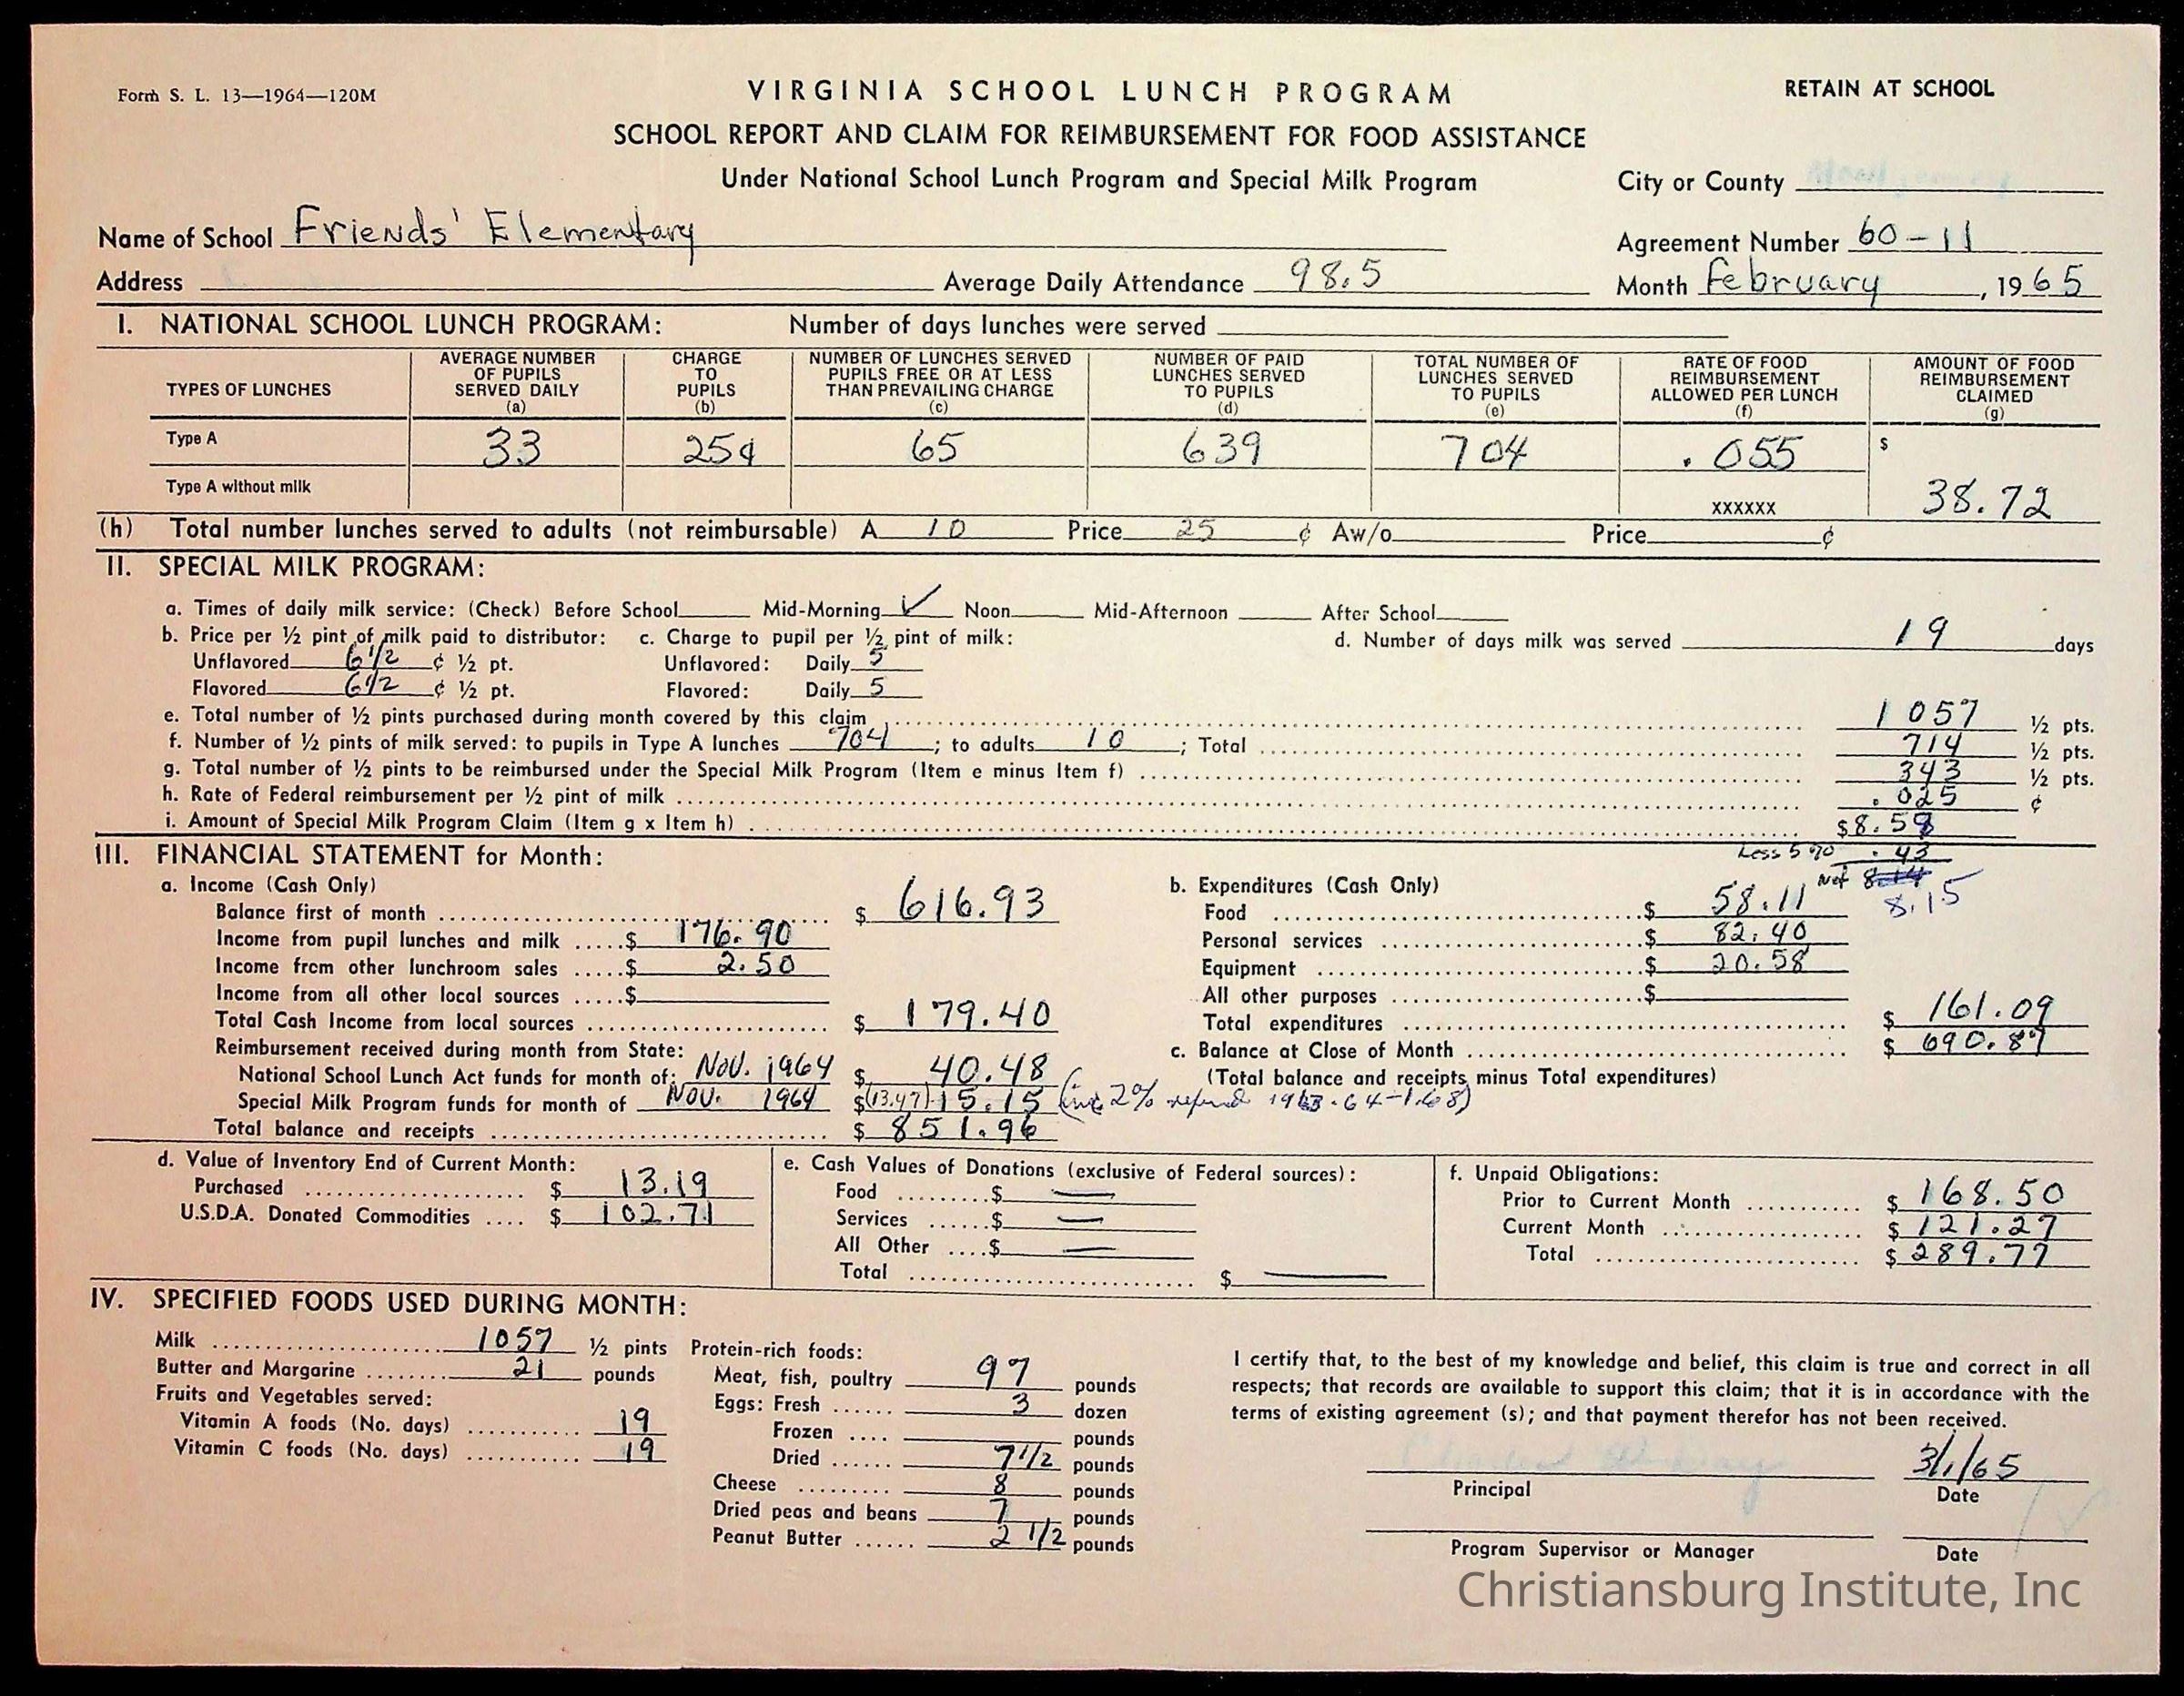 Form S. L. 13—1964—120M
VIRGINIA SCHOOL LUNCH PROGRAM
RETAIN AT SCHOOL
SCHOOL REPORT AND CLAIM FOR REIMBURSEMENT FOR FOOD ASSISTANCE
Under National School Lunch Program and Special Milk Program
City or County
Name of School Friends' Elementary
Agreement Number 60-11
Address Average Daily Attendance 98.5
Month February, 1965
I. NATIONAL SCHOOL LUNCH PROGRAM: Number of days lunches were served
TYPES OF LUNCHES
AVERAGE NUMBER OF PUPILS SERVED DAILY (a)
CHARGE TO PUPILS (b)
NUMBER OF LUNCHES SERVED PUPILS FREE OR AT LESS THAN PREVAILING CHARGE (c)
NUMBER OF PAID LUNCHES SERVED TO PUPILS (d)
TOTAL NUMBER OF LUNCHES SERVED TO PUPILS (e)
RATE OF FOOD REIMBURSEMENT ALLOWED PER LUNCH (f)
AMOUNT OF FOOD REIMBURSEMENT CLAIMED (g)
Type A 33 25¢ 65 639 704 .055 $
Type A without milk XXXXXX 38.72
(h) Total number lunches served to adults (not reimbursable) A 10 Price 25 ¢ Aw/o Price ¢
II. SPECIAL MILK PROGRAM:
a. Times of daily milk service: (Check) Before School Mid-Morning ✓ Noon Mid-Afternoon After School
b. Price per ½ pint of milk paid to distributor: c. Charge to pupil per ½ pint of milk: d. Number of days milk was served 19 days
Unflavored 6 1/2 ¢ ½ pt. Unflavored: Daily 5
Flavored 6 1/2 ¢ ½ pt. Flavored: Daily 5
e. Total number of ½ pints purchased during month covered by this claim 1057 ½ pts.
f. Number of ½ pints of milk served: to pupils in Type A lunches 704; to adults 10; Total 714 ½ pts.
g. Total number of ½ pints to be reimbursed under the Special Milk Program (Item e minus Item f) 343 ½ pts.
h. Rate of Federal reimbursement per ½ pint of milk .025 ¢
i. Amount of Special Milk Program Claim (Item g x Item h) $8.58
Less 5% .43
III. FINANCIAL STATEMENT for Month:
Net 8.14
8.15
a. Income (Cash Only) b. Expenditures (Cash Only)
Balance first of month $ 616.93 Food $ 58.11
Income from pupil lunches and milk $ 176.90 Personal services $ 82.40
Income from other lunchroom sales $ 2.50 Equipment $ 20.58
Income from all other local sources $ All other purposes $
Total Cash Income from local sources $ 179.40 Total expenditures $ 161.09
Reimbursement received during month from State: c. Balance at Close of Month $ 690.87
National School Lunch Act funds for month of: Nov. 1964 $ 40.48 (Total balance and receipts minus Total expenditures)
Special Milk Program funds for month of Nov. 1964 $ (13.47) 15.15 (inc 2% refund 1963-64-1.68)
Total balance and receipts $ 851.96
d. Value of Inventory End of Current Month: e. Cash Values of Donations (exclusive of Federal sources): f. Unpaid Obligations:
Purchased $ 13.19 Food $ — Prior to Current Month $ 168.50
U.S.D.A. Donated Commodities $ 102.71 Services $ — Current Month $ 121.27
All Other $ — Total $ 289.77
Total $ —
IV. SPECIFIED FOODS USED DURING MONTH:
Milk 1057 ½ pints Protein-rich foods:
Butter and Margarine 21 pounds Meat, fish, poultry 97 pounds
Fruits and Vegetables served: Eggs: Fresh 3 dozen
Vitamin A foods (No. days) 19 Frozen pounds
Vitamin C foods (No. days) 19 Dried 7 1/2 pounds
Cheese 8 pounds
Dried peas and beans 7 pounds
Peanut Butter 2 1/2 pounds
I certify that, to the best of my knowledge and belief, this claim is true and correct in all
respects; that records are available to support this claim; that it is in accordance with the
terms of existing agreement (s); and that payment therefor has not been received.
3/1/65
Principal Date
Program Supervisor or Manager Date
Christiansburg Institute, Inc